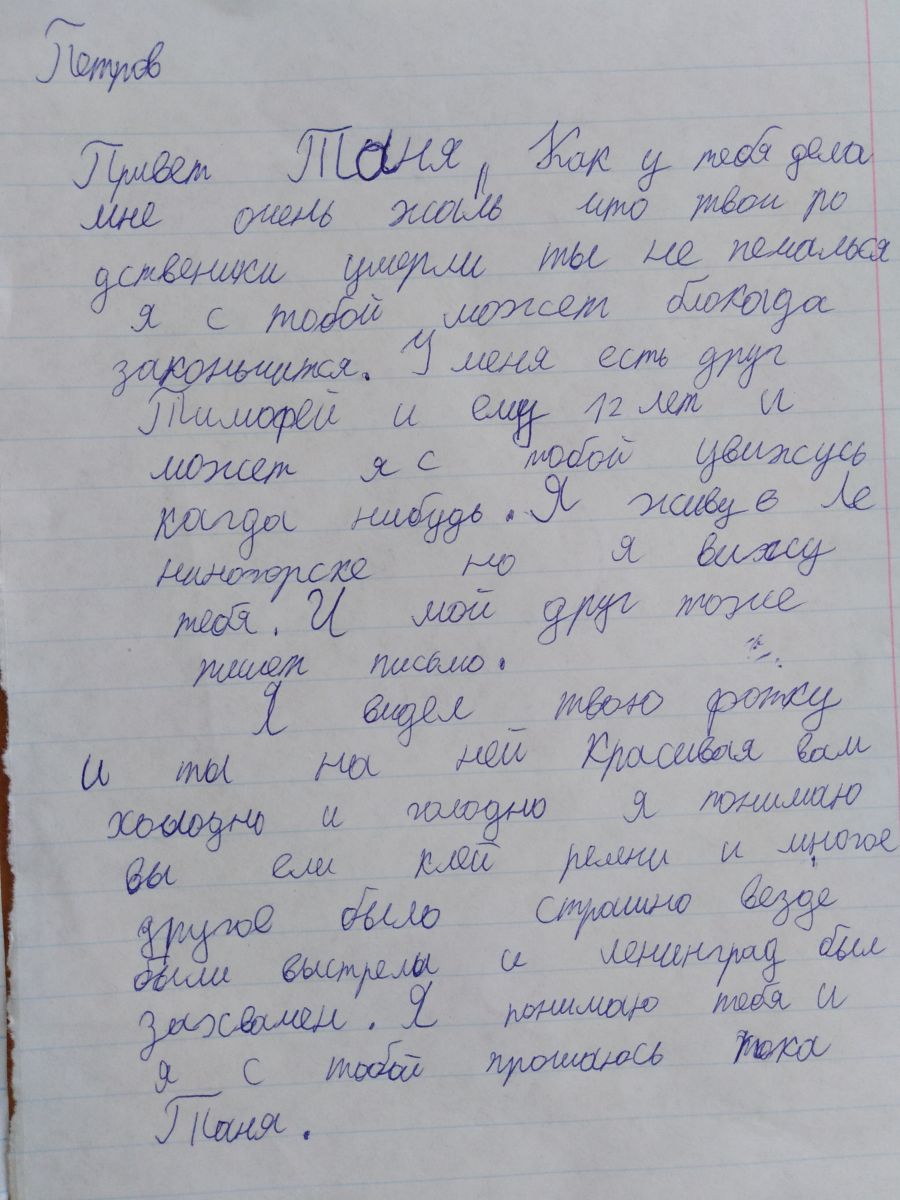 Петров
Привет Таня, Как у тебя дела
мне очень жаль што твои ро
дственики умерли ты не пемалься
я с тобой может блокада
законьчится. У меня есть друг
Тимофей и ему 12 лет и
может я с тобой увижусь
кагда нибудь. Я живу в Ле
ниногорске но я вижу
тебя. И мой друг тоже
пишет письмо.
Я видел твою фотку
и ты на ней красивая вам
холодно и голодно я понимаю
вы ели клей ремни и многое
другое было страшно везде
были выстрелы и ленинград был
захвачен. Я понимаю тебя и
я с тобой прошаюсь пока
Таня.